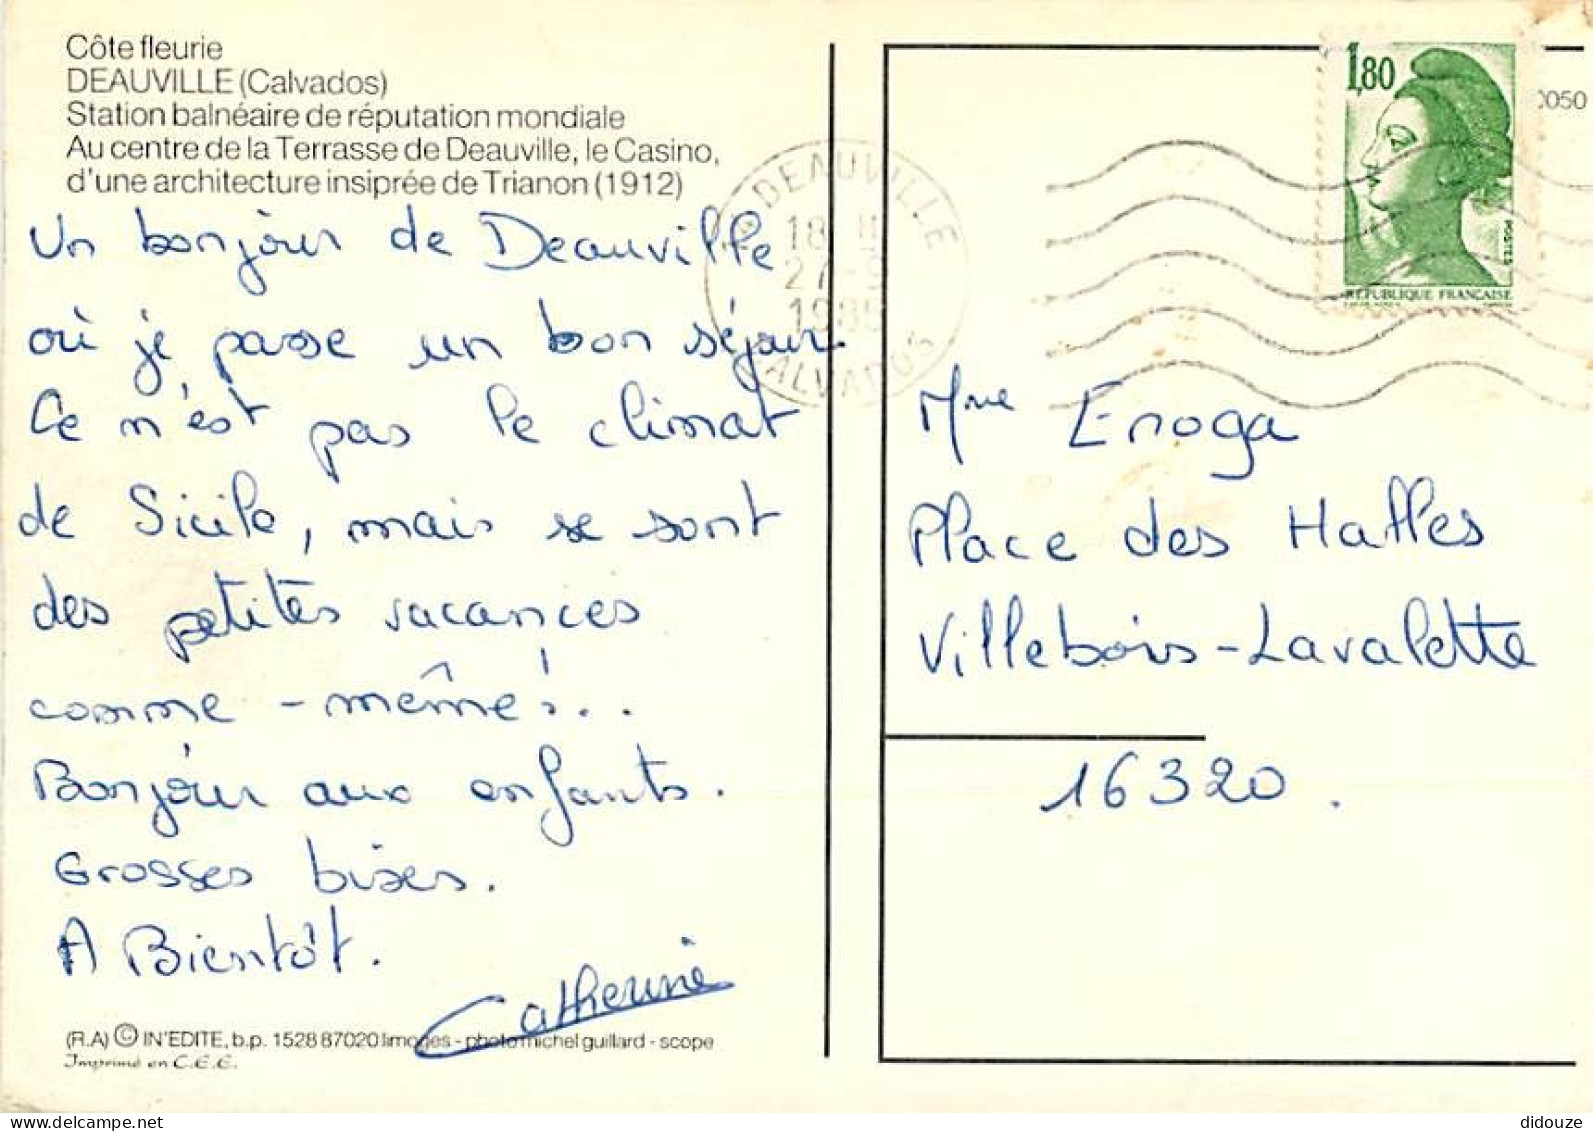 Côte fleurie
DEAUVILLE (Calvados)
Station balnéaire de réputation mondiale
Au centre de la Terrasse de Deauville, le Casino,
d'une architecture insiprée de Trianon (1912)
Un bonjour de Deauville
où je passe un bon séjour
Ce n'est pas le climat
de Sicile, mais se sont
des petites vacances
comme - même !..
Bonjour aux enfants.
Grosses bises.
A Bientôt.
Catherine
(R.A) © IN'EDITE, b.p. 1528 87020 limoges - photo michel guillard - scope
Imprimé en C.E.E.
DEAUVILLE
18 H
27-9
CALVADOS
1,80
POSTES
REPUBLIQUE FRANÇAISE
0050
Mme Enoga
Place des Halles
Villebois-Lavalette
16320.
delcampe.net
didouze